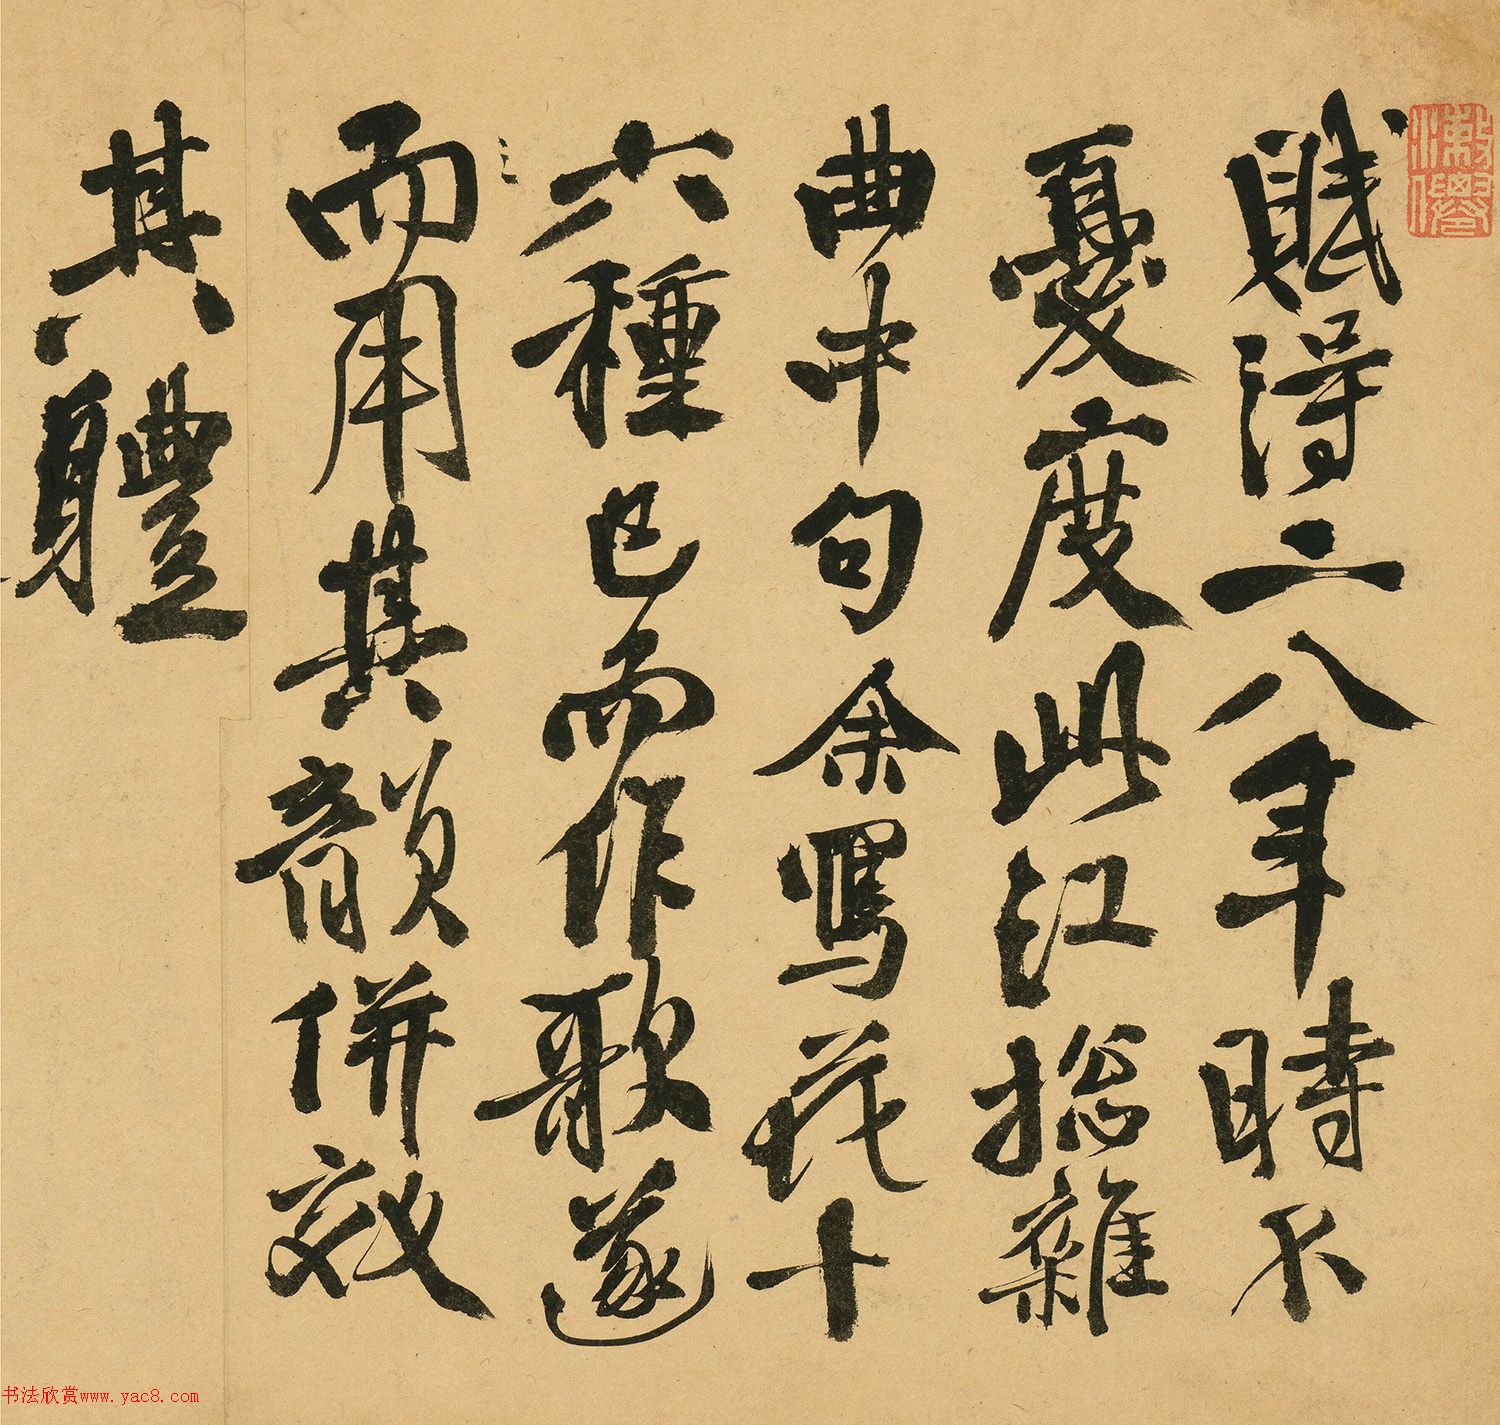 賦得二八年時不
憂度此江總雜
曲中句余寫花十
六種已而作歌遂
而用其韻併效
其軆
书法欣赏www.yac8.com